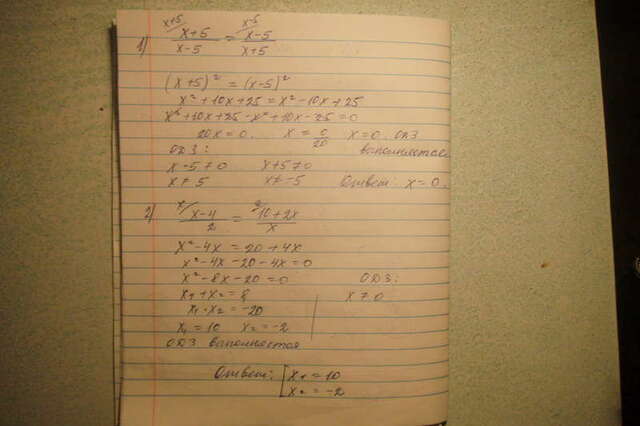 1) x+5/ x+5 / x-5 = x-5/ x-5 / x+5
(x+5)² = (x-5)²
x²+10x+25 = x²-10x+25
x²+10x+25-x²+10x-25=0
20x=0. x = 0/20 x=0. ОДЗ
ОДЗ: выполняется
x-5≠0 x+5≠0
x≠5 x≠-5 Ответ: x=0.
2) x/ x-4 / 2 = 2/ 10+2x / x
x²-4x = 20+4x
x²-4x-20-4x=0
x²-8x-20=0 ОДЗ:
x₁+x₂=8 x≠0
x₁·x₂=-20
x₁=10 x₂=-2
ОДЗ выполняется
Ответ: [x₁=10
x₂=-2